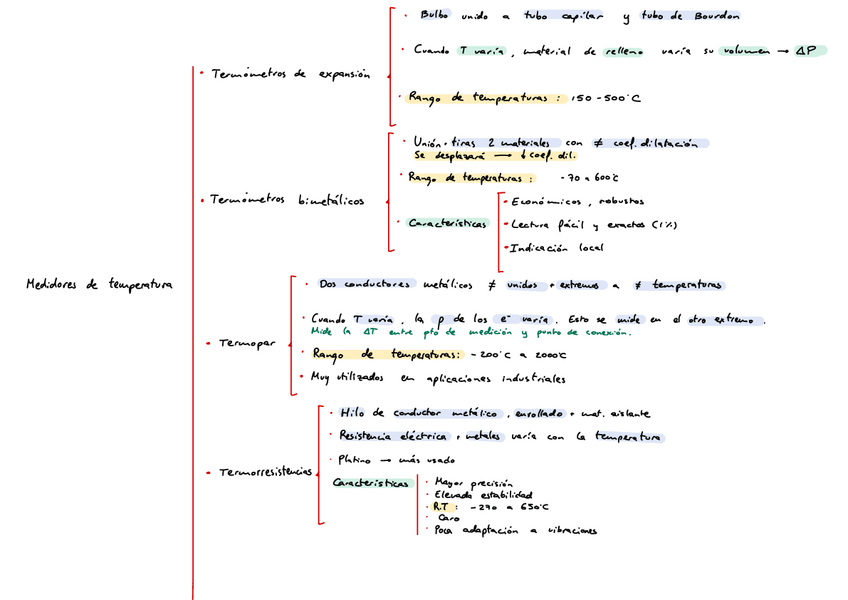 Medidores de temperatura
• Termómetros de expansión
· Bulbo unido a tubo capilar y tubo de Bourdon
· Cuando T varía, material de relleno varía su volumen → ΔP
· Rango de temperaturas: 150 - 500°C
• Termómetros bimetálicos
· Unión · tiras 2 materiales con ≠ coef. dilatación
Se desplazará → ↓ coef. dil.
· Rango de temperaturas: -70 a 600°C
· Características
• Económicos, robustos
• Lectura fácil y exactos (1%)
• Indicación local
• Termopar
· Dos conductores metálicos ≠ unidos · extremos a ≠ temperaturas
· Cuando T varía, la ρ de los e⁻ varía. Esto se mide en el otro extremo.
Mide la ΔT entre pto de medición y punto de conexión.
· Rango de temperaturas: -200°C a 2000°C
· Muy utilizados en aplicaciones industriales
• Termorresistencias
· Hilo de conductor metálico, enrollado + mat. aislante
· Resistencia eléctrica · metales varía con la temperatura
· Platino → más usado
Características
· Mayor precisión
· Elevada estabilidad
· R.T: -270 a 650°C
· Caro
· Poca adaptación a vibraciones